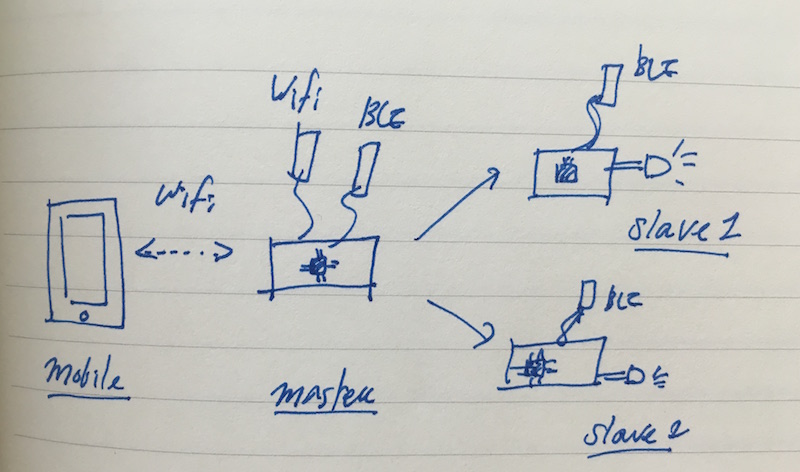 Wifi
BLE
BLE
Wifi
slave 1
BLE
Mobile
Master
slave 2